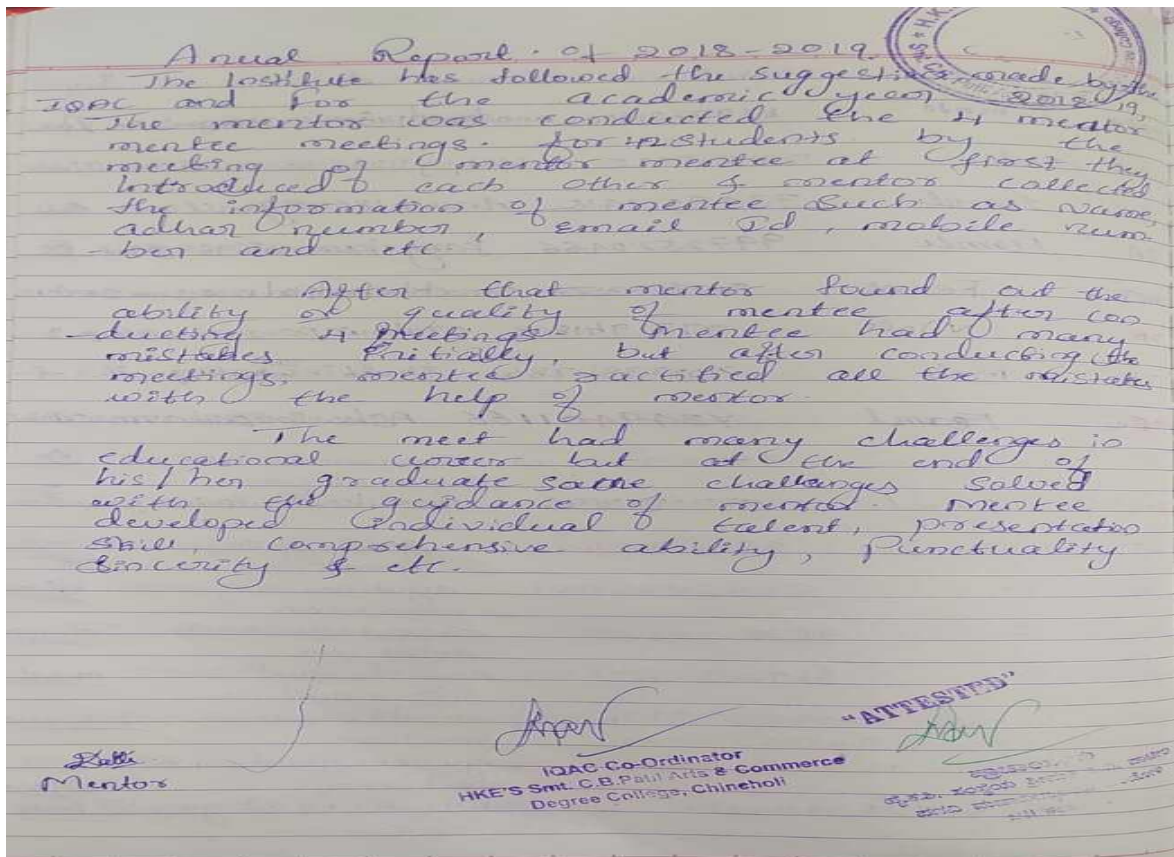 Anual Report of 2018-2019.
The Institute has followed the suggestives made by the
IQAC and for the academic year 2018-19,
The mentor was conducted the 4 mentor
mentee meetings. for 12 students by the
meeting of mentor mentee at first they
introduced each other & mentor collected
the information of mentee such as Name,
adhar number, Email Id, mobile num-
-ber and etc
After that mentor found out the
ability or quality of mentee after con
-ducting 4 Meetings mentee had many
mistakes Initially, but after conducting the
meetings, mentee ractified all the mistakes
with the help of mentor.
The meet had many challenges in
educational but at the end of
his/her graduate same challenges solved
with the guidance of mentor. Mentee
developed individual talent, presentation
skill, comprehensive ability, Punctuality
Sincerity & etc.
"ATTESTED"
Mentor
IQAC Co-Ordinator
HKE'S Smt. C.B.Patil Arts & Commerce
Degree College, Chincholi